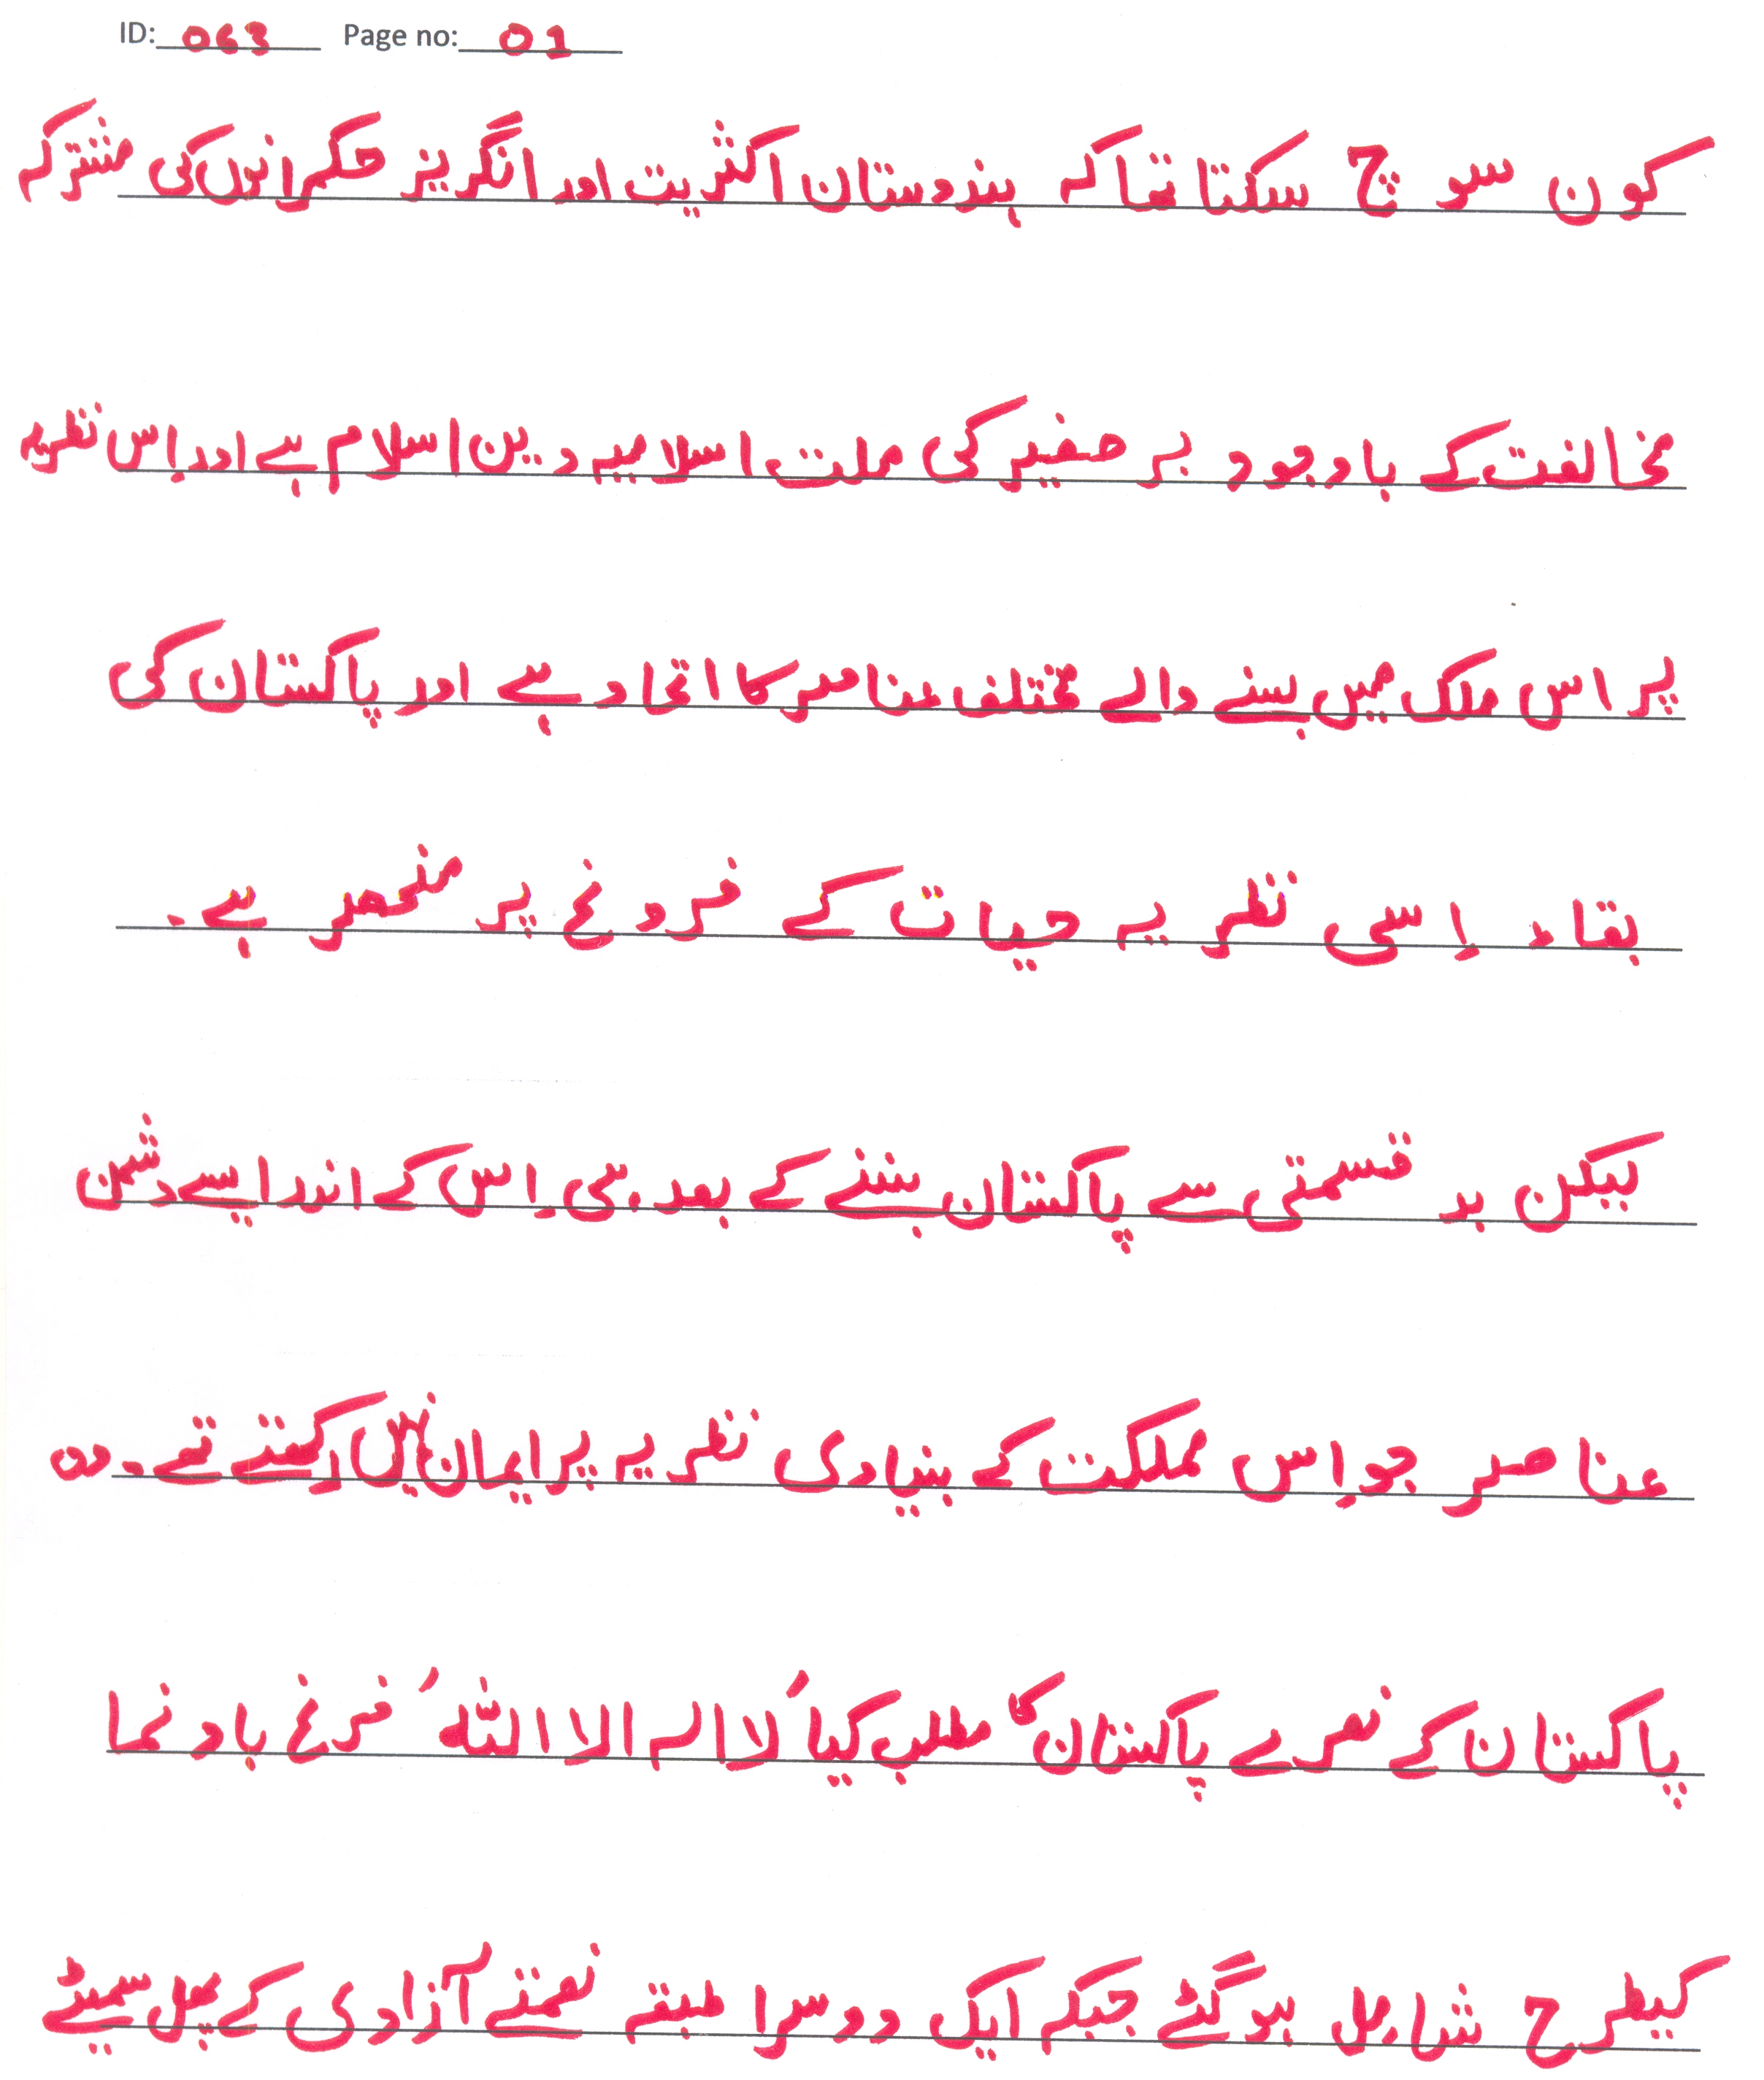 ID: 063 Page no: 01
کون سوچ سکتا تھا کہ ہندوستان اکثریت اور انگریز حکمرانوں کی مشترکہ
مخالفت کے باوجود بر صغیر کی ملت اسلامیہ دین اسلام ہے اور اِس نظریہ
پر اس ملک میں بسنے والے مختلف عناصر کا اتحاد ہے اور پاکستان کی
بقاء اِسی نظریہ حیات کے فروغ پر منحصر ہے۔
لیکن بد قسمتی سے پاکستان بننے کے بعد بھی اِس کے اندر ایسے دشمن
عناصر جو اِس مملکت کے بنیادی نظریہ پر ایمان نہیں رکھتے تھے۔ وہ
پاکستان کے نعرے پاکستان کا مطلب کیا ُلا الہ الا اللّٰہ ُ فرغ باد نما
کیطرح شامل ہو گئے جبکہ ایک دوسرا طبقہ نعمتے آزادی کے پھل سمیٹے